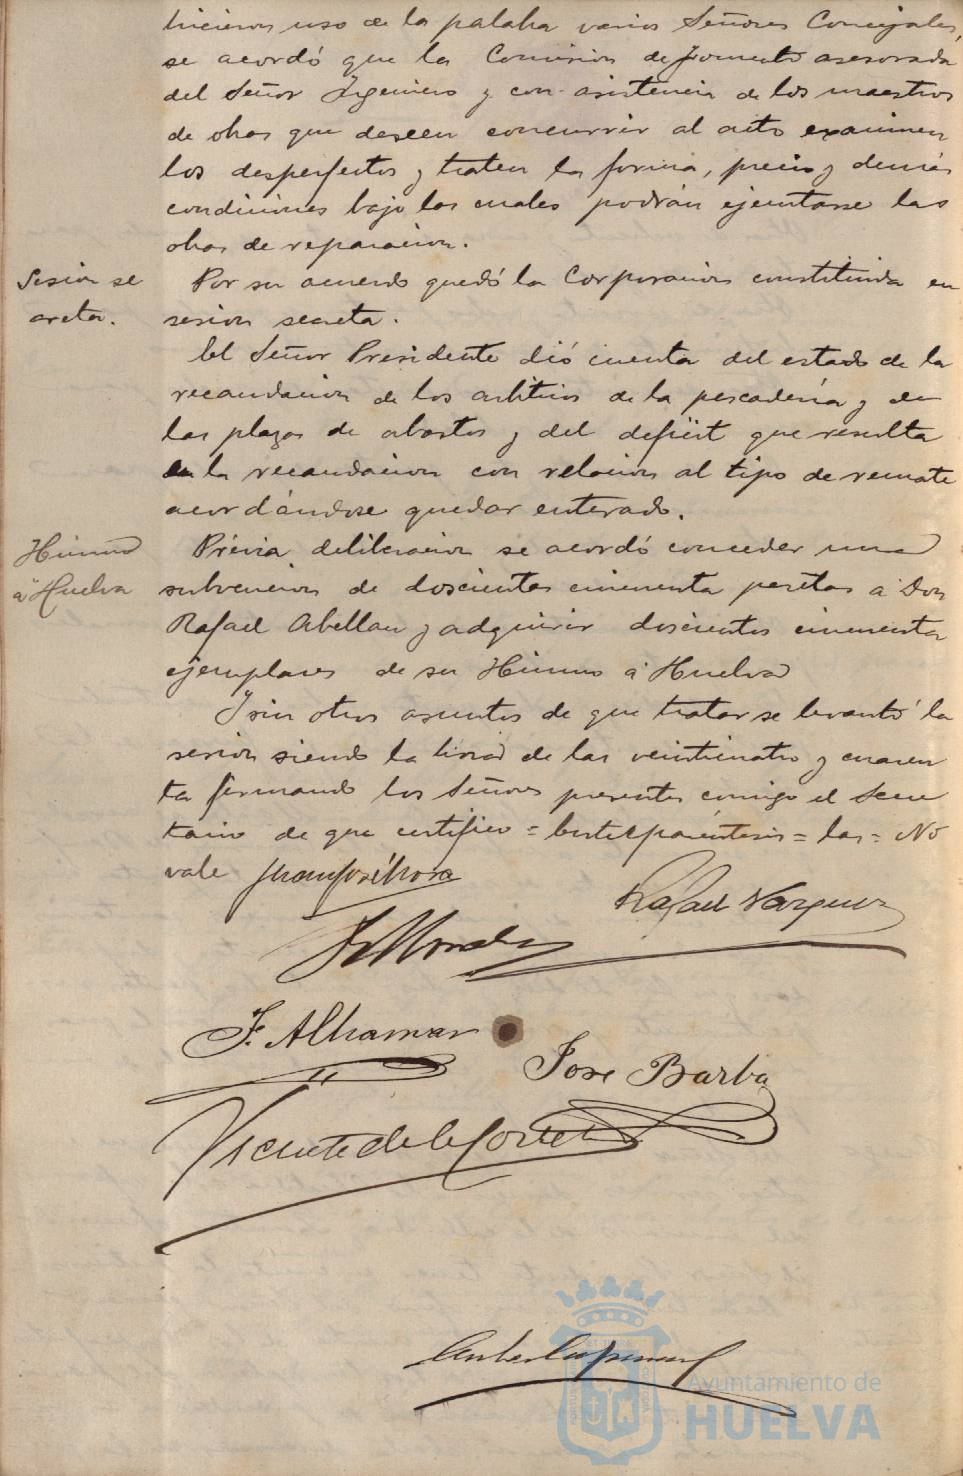 hicieron uso de la palabra varios Señores Concejales,
se acordó que la Comision de fomento asesorada
del Señor Ingeniero y con asistencia de los maestros
de obras que deseen concurrir al acto examinen
los desperfectos y traten la forma, precio y demás
condiciones bajo las cuales podrán ejecutarse las
obras de reparacion.
Sesion se
creta.
Por su acuerdo quedó la Corporacion constituida en
sesion secreta.
El Señor Presidente dió cuenta del estado de la
recaudacion de los arbitrios de la pescadería y de
las plazas de abastos y del deficit que resulta
en la recaudacion con relacion al tipo de remate
acordándose quedar enterado.
Himno
á Huelva
Prévia deliberacion se acordó conceder una
subvencion de doscientas cincuenta pesetas á Don
Rafael Abellan y adquirir doscientos cincuenta
ejemplares de su Himno á Huelva
Y sin otros asuntos de que tratar se levantó la
sesion siendo la hora de las veinticuatro y cuaren
ta firmando los Señores presentes conmigo el Secre
tario de que certifico = paréntesis = las = No
vale Juan José Mora
Rafael Vazquez
Morales
F. Alhamar
Jose Barba
Vicente de la Corte
Ayuntamiento de
HUELVA